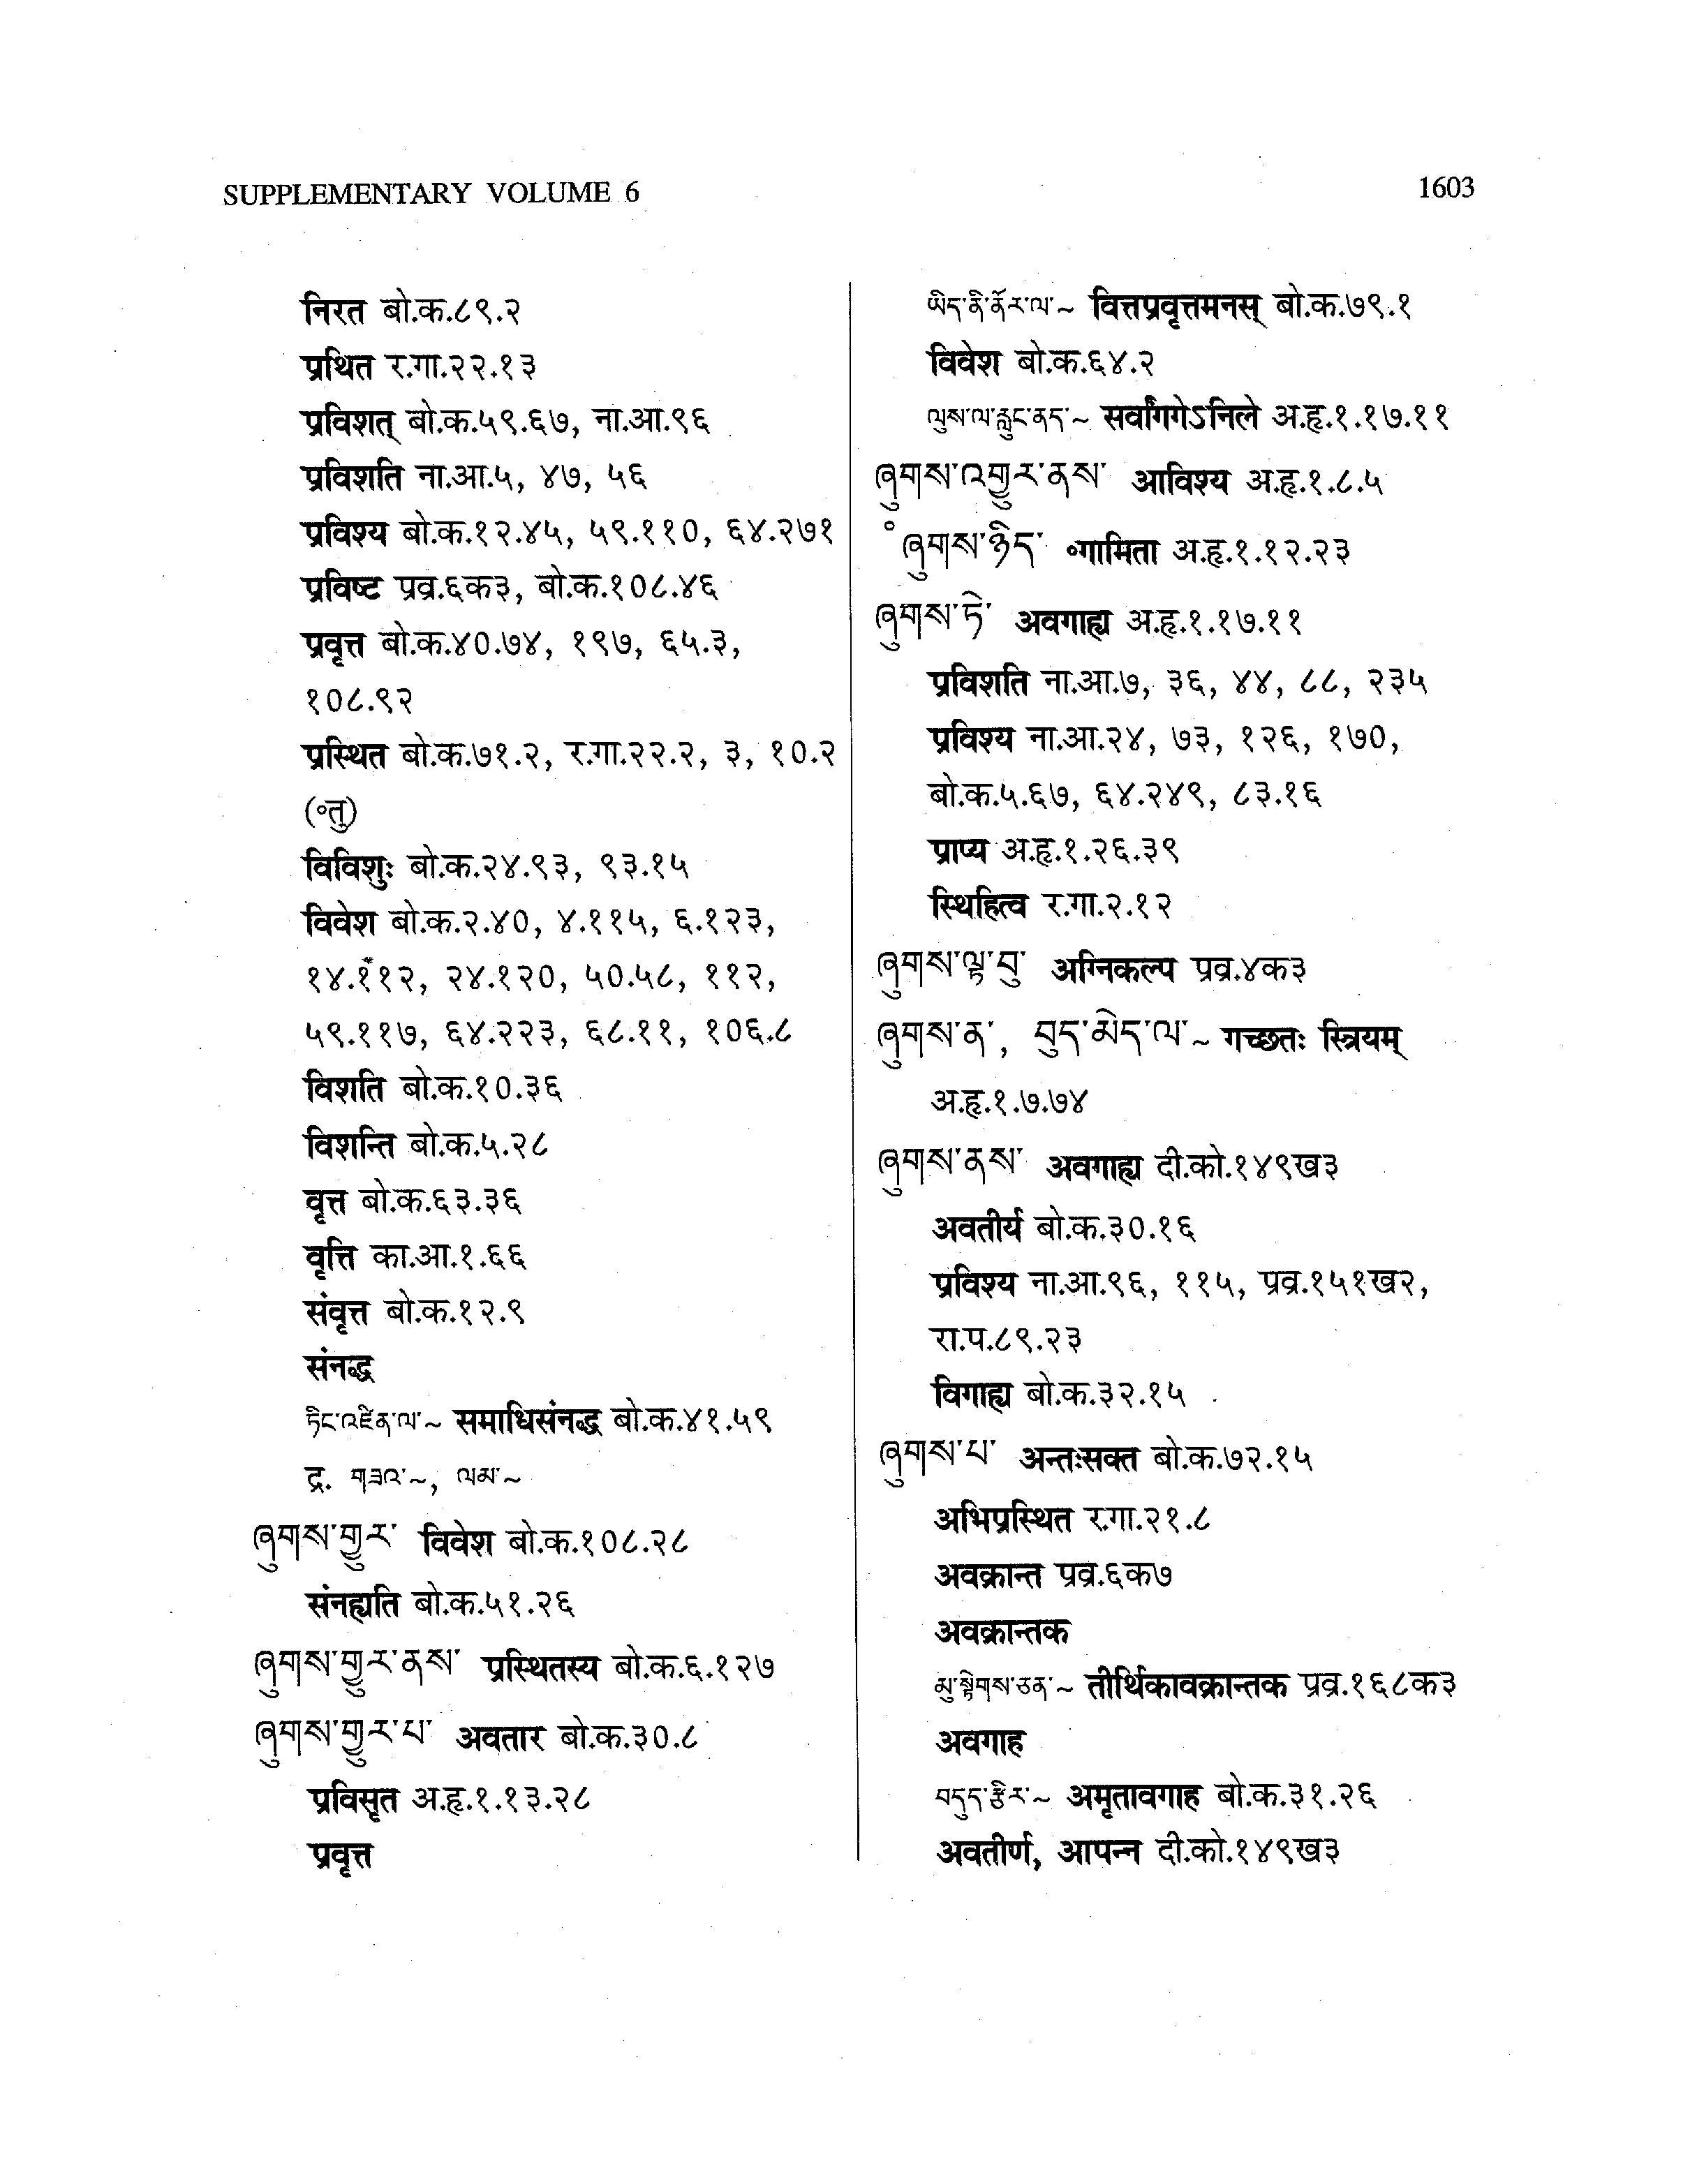 SUPPLEMENTARY VOLUME 6
1603
निरत बो.क.८९.२
प्रथित र.गा.२२.१३
प्रविशत् बो.क.५९.६७, ना.आ.९६
प्रविशति ना.आ.५, ४७, ५६
प्रविश्य बो.क.१२.४५, ५९.११०, ६४.२७१
प्रविष्ट प्रव्र.६क३, बो.क.१०८.४६
प्रवृत्त बो.क.४०.७४, १९७, ६५.३,
१०८.९२
प्रस्थित बो.क.७१.२, र.गा.२२.२, ३, १०.२
(॰तृ)
विविशुः बो.क.२४.९३, ९३.१५
विवेश बो.क.२.४०, ४.११५, ६.१२३,
१४.११२, २४.१२०, ५०.५८, ११२,
५९.११७, ६४.२२३, ६८.११, १०६.८
विशति बो.क.१०.३६
विशन्ति बो.क.५.२८
वृत्त बो.क.६३.३६
वृत्ति का.आ.१.६६
संवृत्त बो.क.१२.९
संनद्ध
ཏིང་འཛིན་ལ་~ समाधिसंनद्ध बो.क.४१.५९
द्र. གཟའ་~, ལམ་~
ཞུགས་གྱུར་ विवेश बो.क.१०८.२८
संनह्यति बो.क.५१.२६
ཞུགས་གྱུར་ནས་ प्रस्थितस्य बो.क.६.१२७
ཞུགས་གྱུར་པ་ अवतार बो.क.३०.८
प्रविसृत अ.हृ.१.१३.२८
प्रवृत्त
ཡིད་ནི་ནོར་ལ་~ वित्तप्रवृत्तमनस् बो.क.७९.१
विवेश बो.क.६४.२
ལུས་ལ་རླུང་ནད་~ सर्वांगगेऽनिले अ.हृ.१.१७.११
ཞུགས་འགྱུར་ནས་ आविश्य अ.हृ.१.८.५
°ཞུགས་ཉིད་ ॰गामिता अ.हृ.१.१२.२३
ཞུགས་ཏེ་ अवगाह्य अ.हृ.१.१७.११
प्रविशति ना.आ.७, ३६, ४४, ८८, २३५
प्रविश्य ना.आ.२४, ७३, १२६, १७०,
बो.क.५.६७, ६४.२४९, ८३.१६
प्राप्य अ.हृ.१.२६.३९
स्थिहित्व र.गा.२.१२
ཞུགས་ལྟ་བུ་ अग्निकल्प प्रव्र.४क३
ཞུགས་ན་, བུད་མེད་ལ་~ गच्छतः स्त्रियम्
अ.हृ.१.७.७४
ཞུགས་ནས་ अवगाह्य दी.को.१४९ख३
अवतीर्य बो.क.३०.१६
प्रविश्य ना.आ.९६, ११५, प्रव्र.१५१ख२,
रा.प.८९.२३
विगाह्य बो.क.३२.१५
ཞུགས་པ་ अन्तःसक्त बो.क.७२.१५
अभिप्रस्थित र.गा.२१.८
अवक्रान्त प्रव्र.६क७
अवक्रान्तक
མུ་སྟེགས་ཅན་~ तीर्थिकावक्रान्तक प्रव्र.१६८क३
अवगाह
བདུད་རྩིར་~ अमृतावगाह बो.क.३१.२६
अवतीर्ण, आपन्न दी.को.१४९ख३